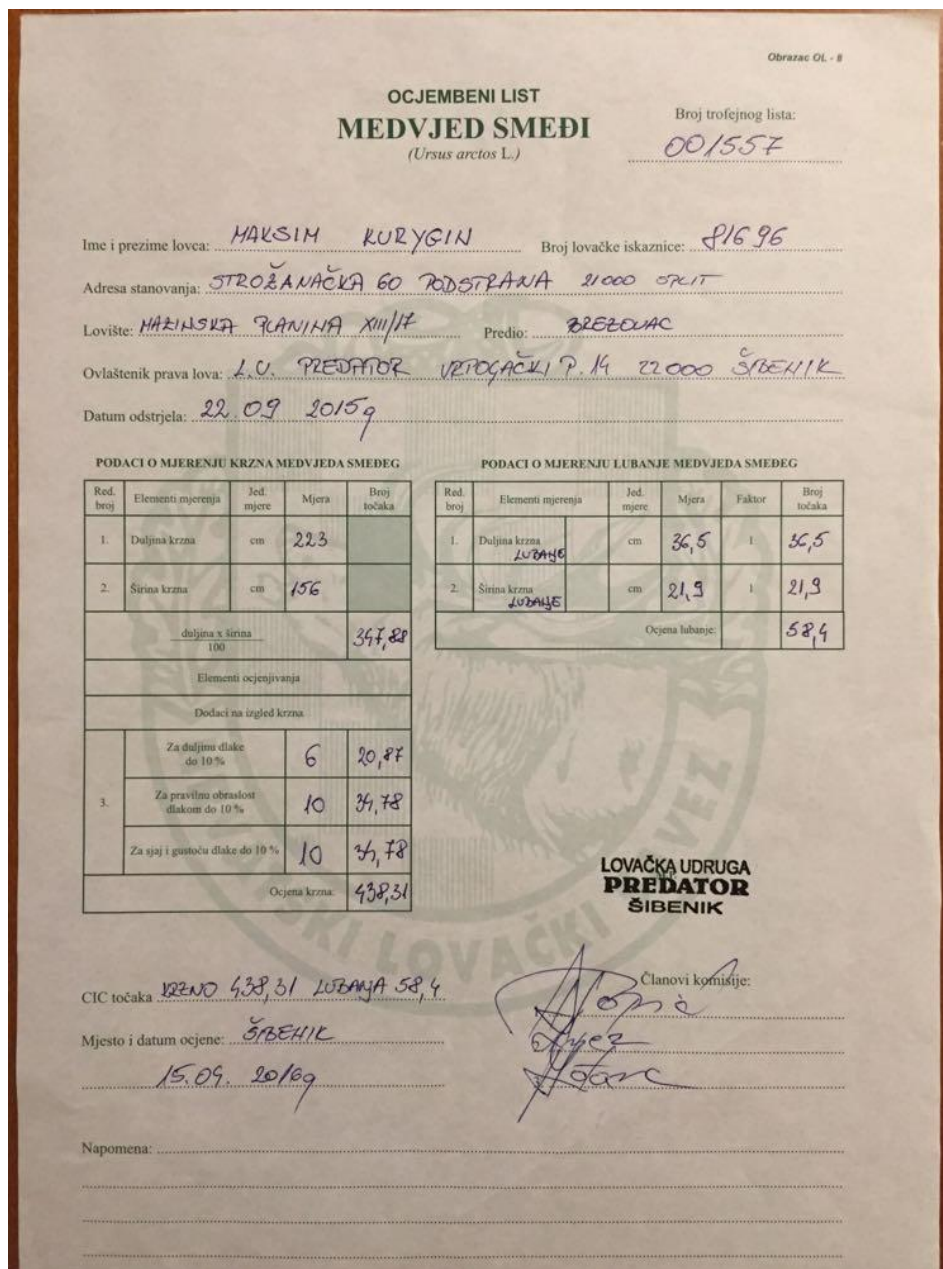 Obrazac OL - 8
OCJEMBENI LIST
MEDVJED SMEĐI
(Ursus arctos L.)
Broj trofejnog lista:
001557
Ime i prezime lovca: MAKSIM KURYGIN Broj lovačke iskaznice: 81696
Adresa stanovanja: STROŽANAČKA 60 PODSTRANA 21000 SPLIT
Lovište: MAZINSKA PLANINA XIII/17 Predio: BREZOVAC
Ovlaštenik prava lova: L.U. PREDATOR VRTOGAČKI P. 14 22000 ŠIBENIK
Datum odstrjela: 22.09 2015g
PODACI O MJERENJU KRZNA MEDVJEDA SMEĐEG
Red. broj Elementi mjerenja Jed. mjere Mjera Broj točaka
1. Duljina krzna cm 223
2. Širina krzna cm 156
duljina x širina
100
347,88
Elementi ocjenjivanja
Dodaci na izgled krzna
3.
Za duljinu dlake do 10 % 6 20,87
Za pravilnu obraslost dlakom do 10 % 10 34,78
Za sjaj i gustoću dlake do 10 % 10 34,78
Ocjena krzna: 438,31
PODACI O MJERENJU LUBANJE MEDVJEDA SMEĐEG
Red. broj Elementi mjerenja Jed. mjere Mjera Faktor Broj točaka
1. Duljina krzna LUBANJE cm 36,5 1 36,5
2. Širina krzna LUBANJE cm 21,9 1 21,9
Ocjena lubanje: 58,4
LOVAČKA UDRUGA
PREDATOR
ŠIBENIK
CIC točaka KRZNO 438,31 LUBANJA 58,4
Članovi komisije:
Mjesto i datum ocjene: ŠIBENIK
15.04. 2016g
Napomena: